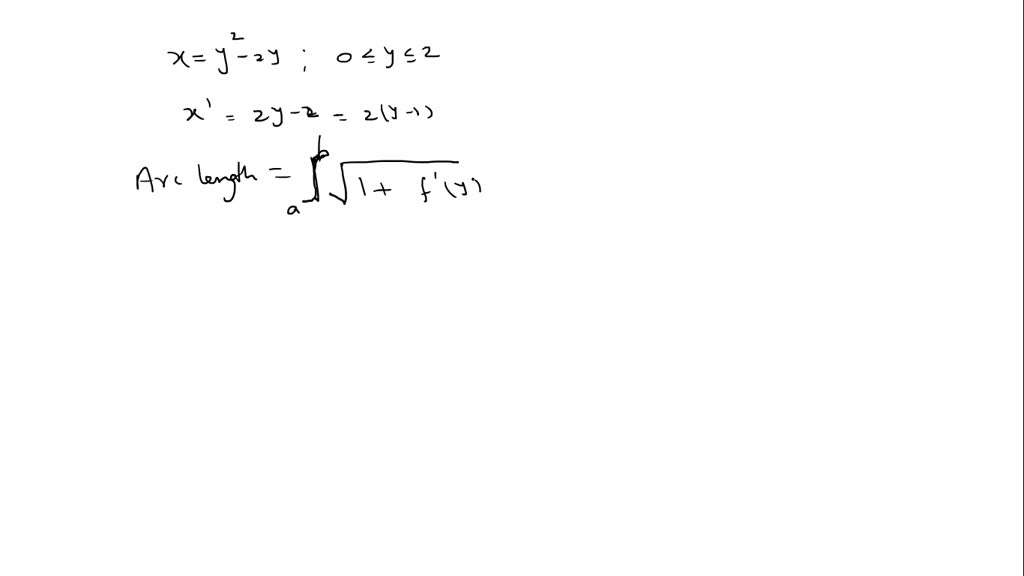 x = y² - 2y ; 0 ≤ y ≤ 2
x' = 2y - 2 = 2(y-1)
Arc length = ∫ₐᵇ √(1 + f'(y))